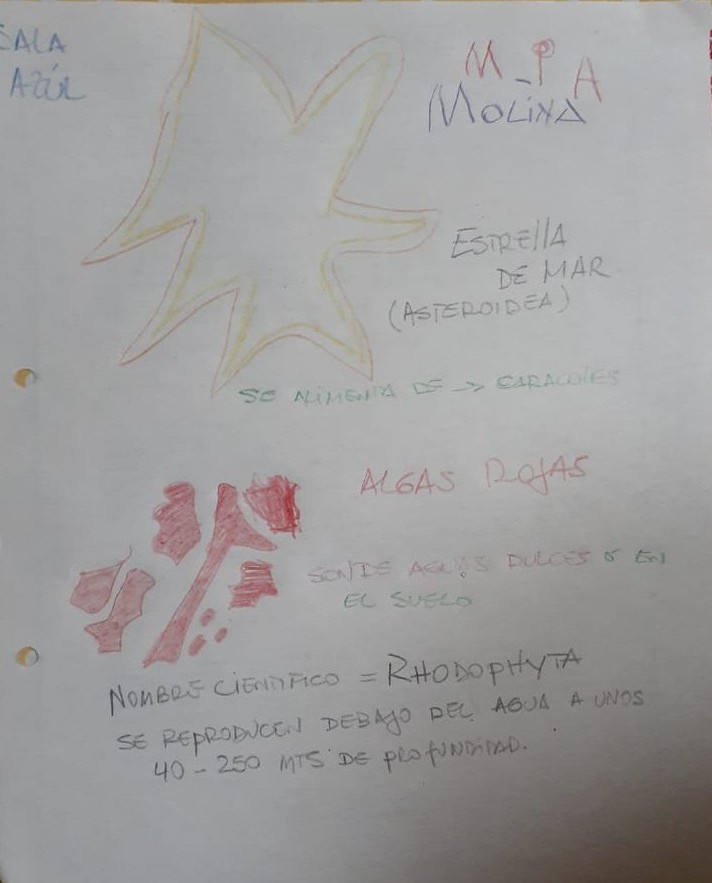 SALA
AZÚL
M_P A
MOLINA
ESTRELLA
DE MAR
(ASTEROIDEA)
SE ALIMENTA DE -> CARACOLES
ALGAS ROJAS
SON DE AGUAS DULCES O EN
EL SUELO
NOMBRE CIENTIFICO = RHODOPHYTA
SE REPRODUCEN DEBAJO DEL AGUA A UNOS
40-250 MTS DE PROFUNDIDAD.